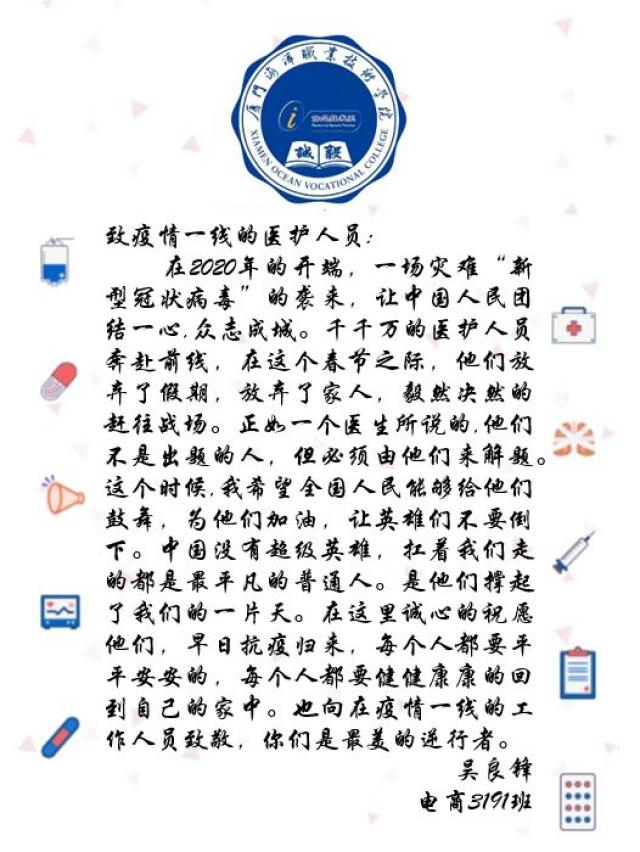 厦門海洋職業技術學院
i
誠毅
XIAMEN OCEAN VOCATIONAL COLLEGE
致疫情一线的医护人员:
在2020年的开端，一场灾难“新
型冠状病毒”的袭来，让中国人民团
结一心,众志成城。千千万的医护人员
奔赴前线，在这个春节之际，他们放
弃了假期，放弃了家人，毅然决然的
赶往战场。正如一个医生所说的,他们
不是出题的人，但必须由他们来解题。
这个时候,我希望全国人民能够给他们
鼓舞，为他们加油，让英雄们不要倒
下。中国没有超级英雄，扛着我们走
的都是最平凡的普通人。是他们撑起
了我们的一片天。在这里诚心的祝愿
他们，早日抗疫归来，每个人都要平
平安安的，每个人都要健健康康的回
到自己的家中。也向在疫情一线的工
作人员致敬，你们是最美的逆行者。
吴良锋
电商3191班